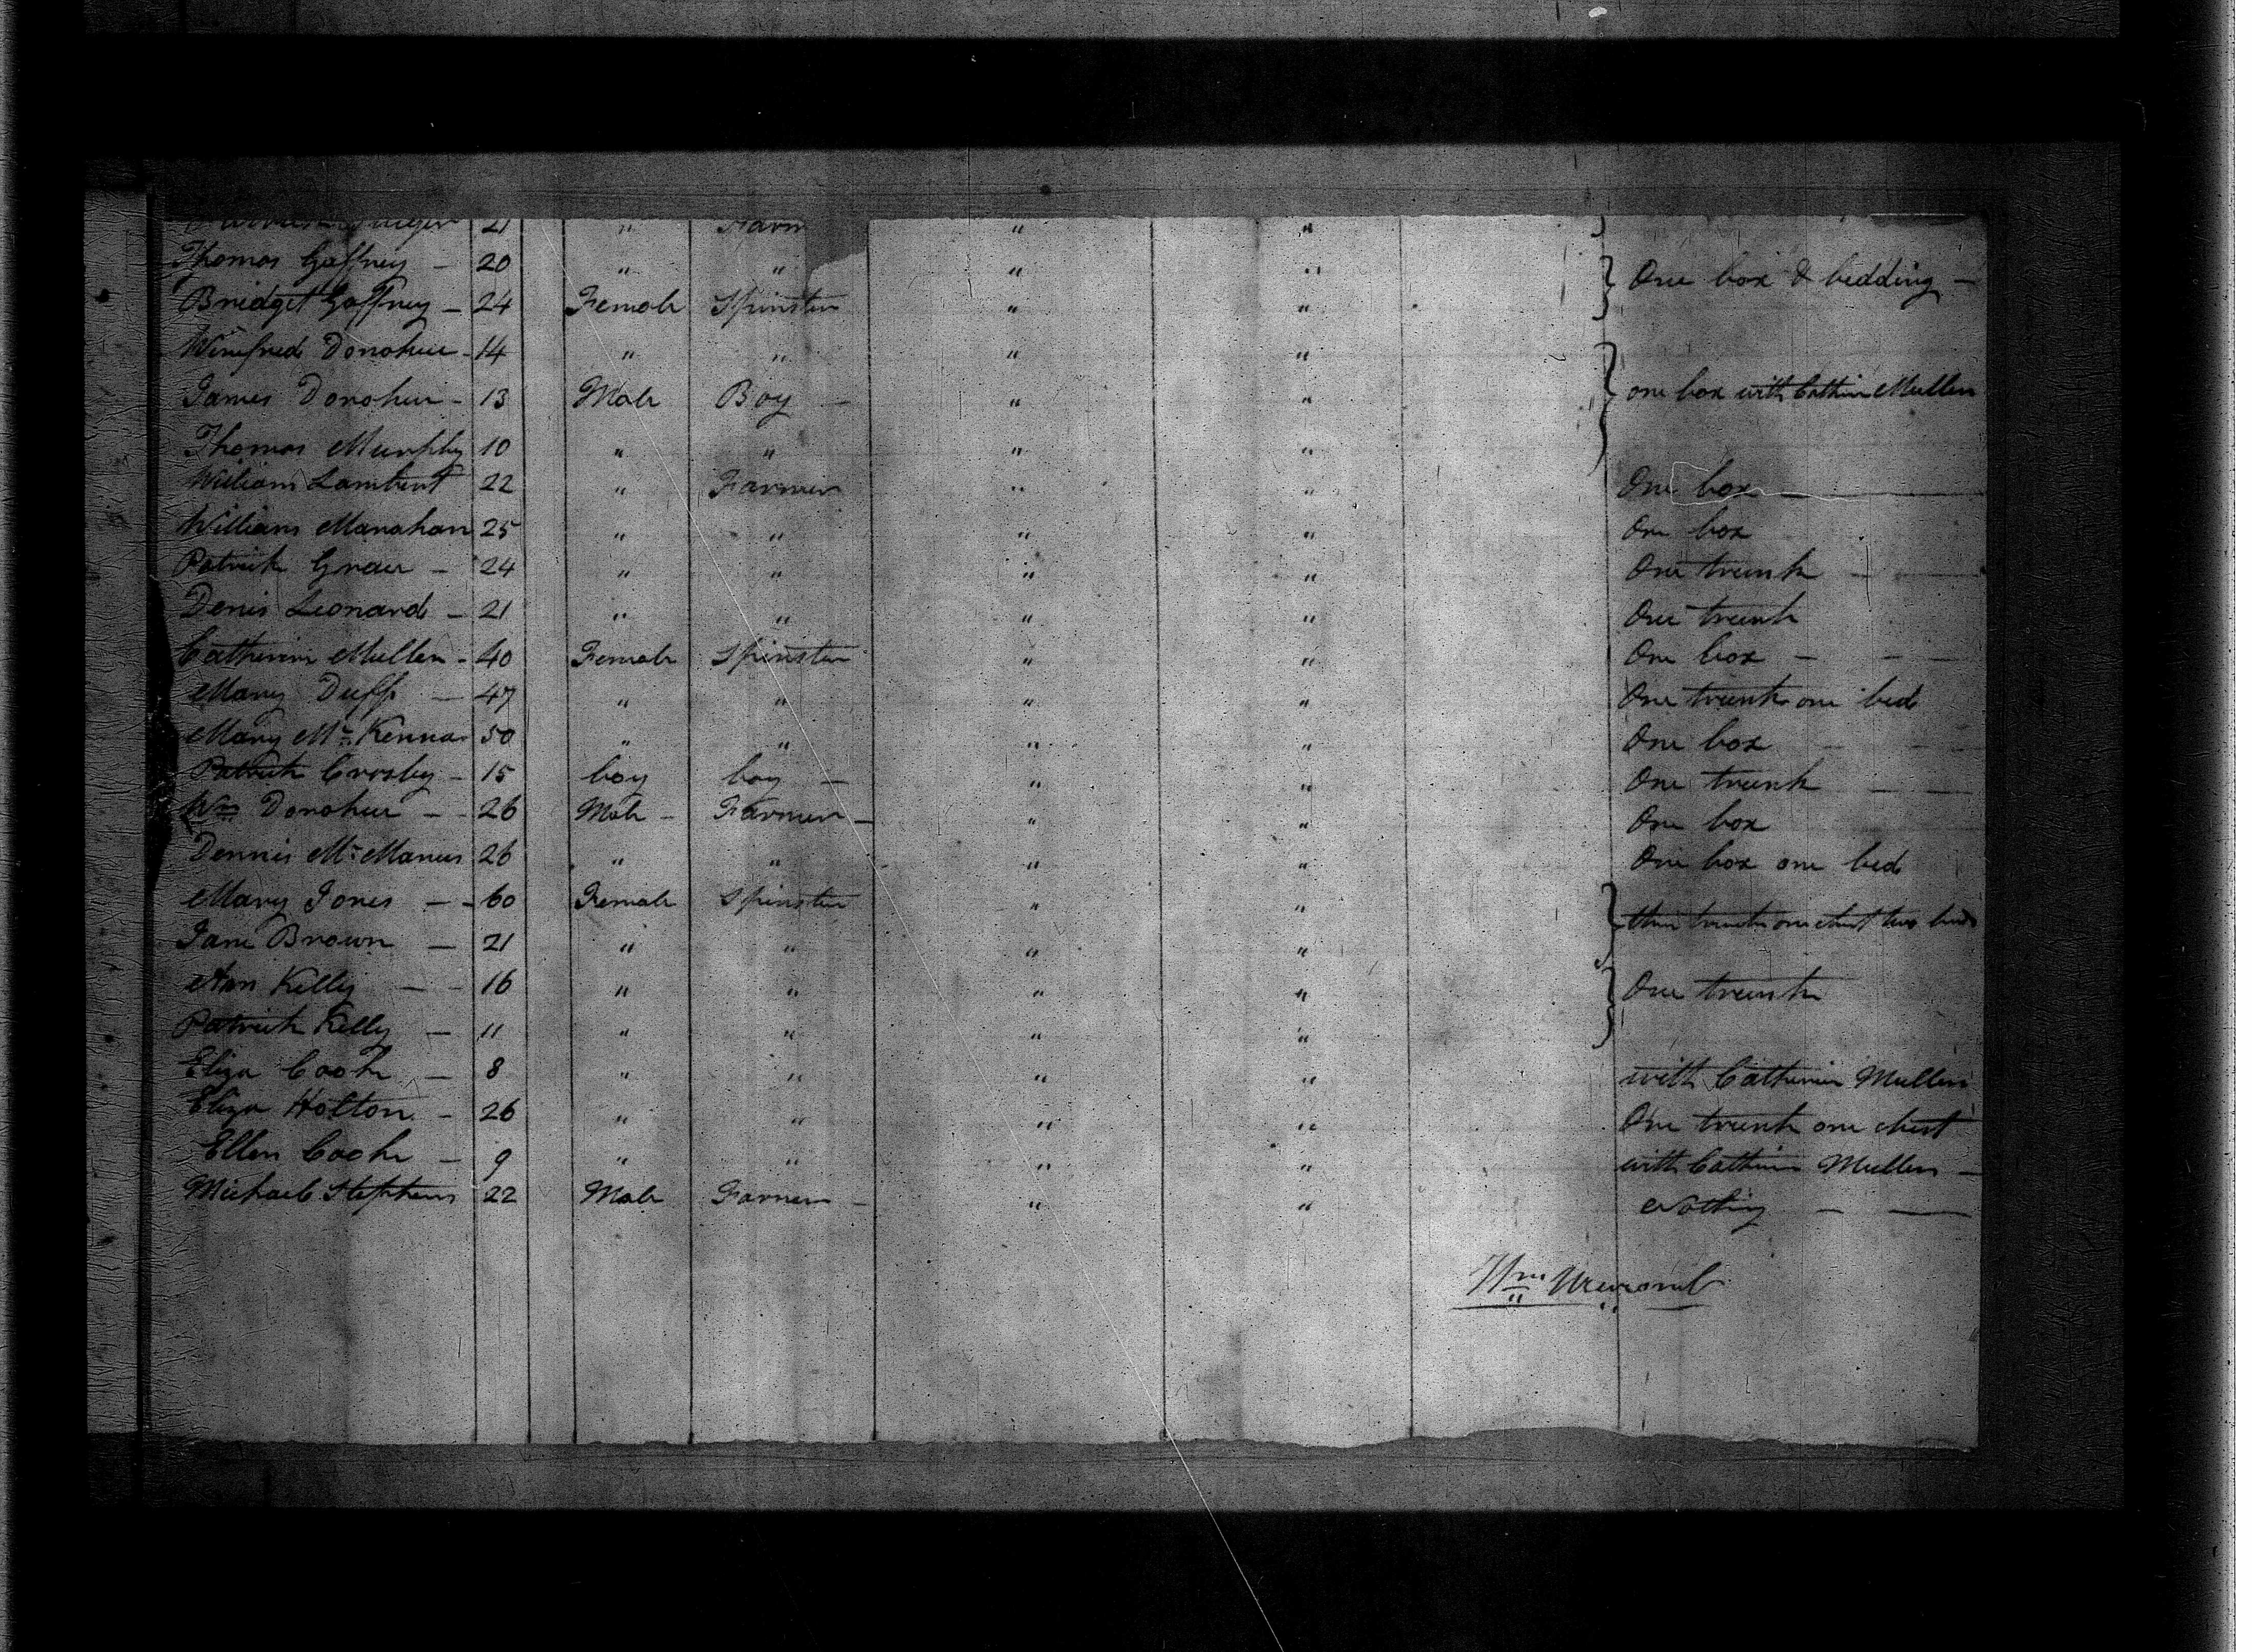 21 " Farm " "
Thomas Gaffney — 20 " " " "
Bridget Gaffney — 24 Female Spinster " " One box & bedding —
Winefred Donohue - 14 " " " "
James Donohue - 13 Male Boy — " " one box with Catherine Mullen
Thomas Murphy 10 " " " "
William Lambert 22 " Farmer " " One box —
William Manahan 25 " " " " One box
Patrick Grace — 24 " " " " One trunk — —
Denis Leonard — 21 " " " " One trunk
Catherine Mullen - 40 Female Spinster " " One box — — —
Mary Duff — 47 " " " " One trunk one bed
Mary Mc Kenna 50 " " " " One box — — —
Patrick Crosby — 15 boy boy — " " One trunk — —
Wm Donohue — - 26 Male - Farmer — " " One box
Dennis Mc Manus 26 " " " " One box one bed
Mary Jones — - 60 Female Spinster " "
Jane Brown — 21 " " " " three trunks one chest two beds
Ann Kelly — - 16 " " " " One trunk
Patrick Kelly — 11 " " " "
Eliza Cooke — 8 " " " " with Catherine Mullen
Eliza Holton - 26 " " " " One trunk one chest
Ellen Cooke — 9 " " " " with Catherine Mullen —
Michael Stephens 22 Male Farmer — " " Nothing — —
Wm